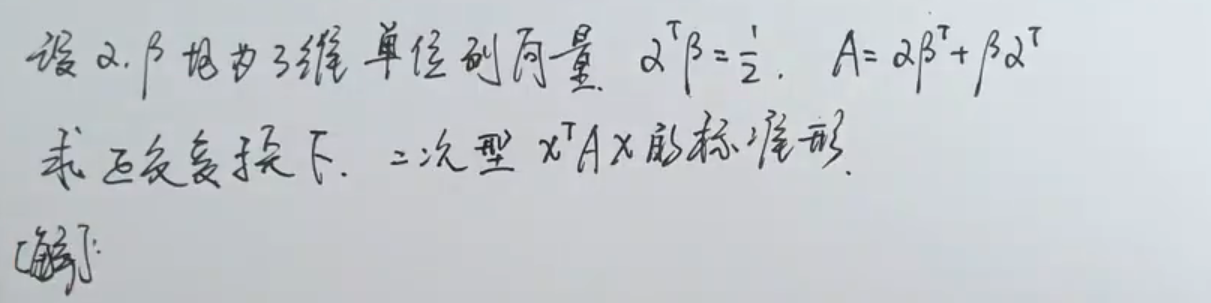 设α.β均为3维单位列向量. α^Tβ=1/2. A=αβ^T+βα^T
求正交变换下.二次型 x^TAx的标准形.
[解]: